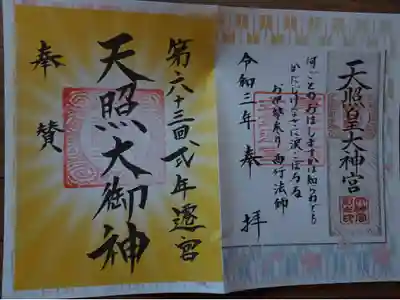 天照皇大神宮
何ごとのおはしますかは知らねども
かたじけなさに涙こぼるる
お伊勢参り 西行法師
令和三年 奉拝
第六十三回式年遷宮
天照大御神
奉賛